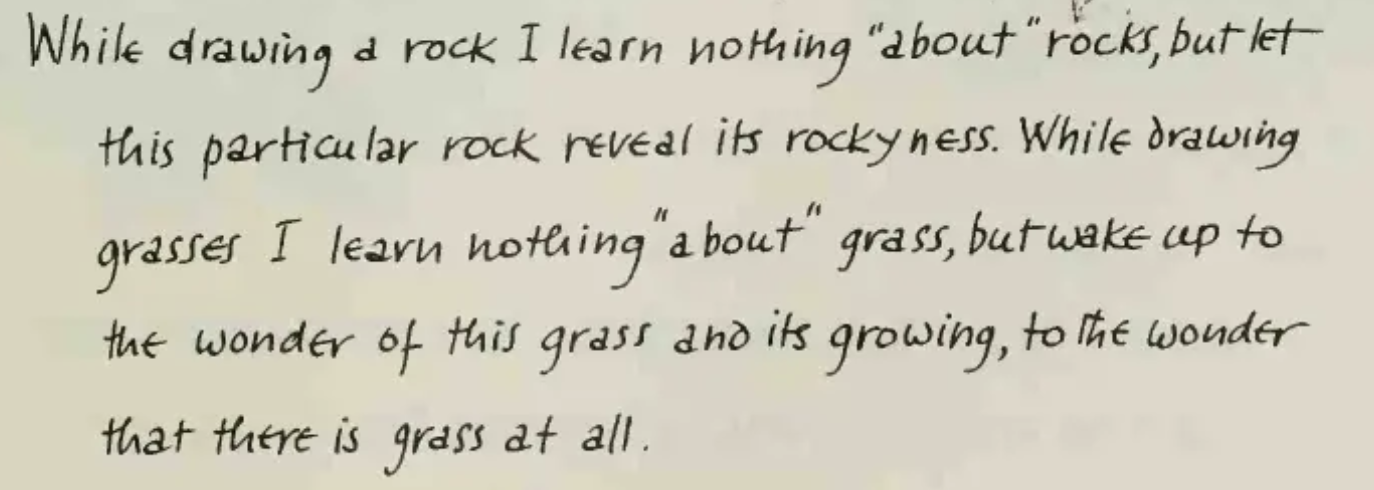 While drawing a rock I learn nothing "about" rocks, but let
this particular rock reveal its rockyness. While drawing
grasses I learn nothing "about" grass, but wake up to
the wonder of this grass and its growing, to the wonder
that there is grass at all.